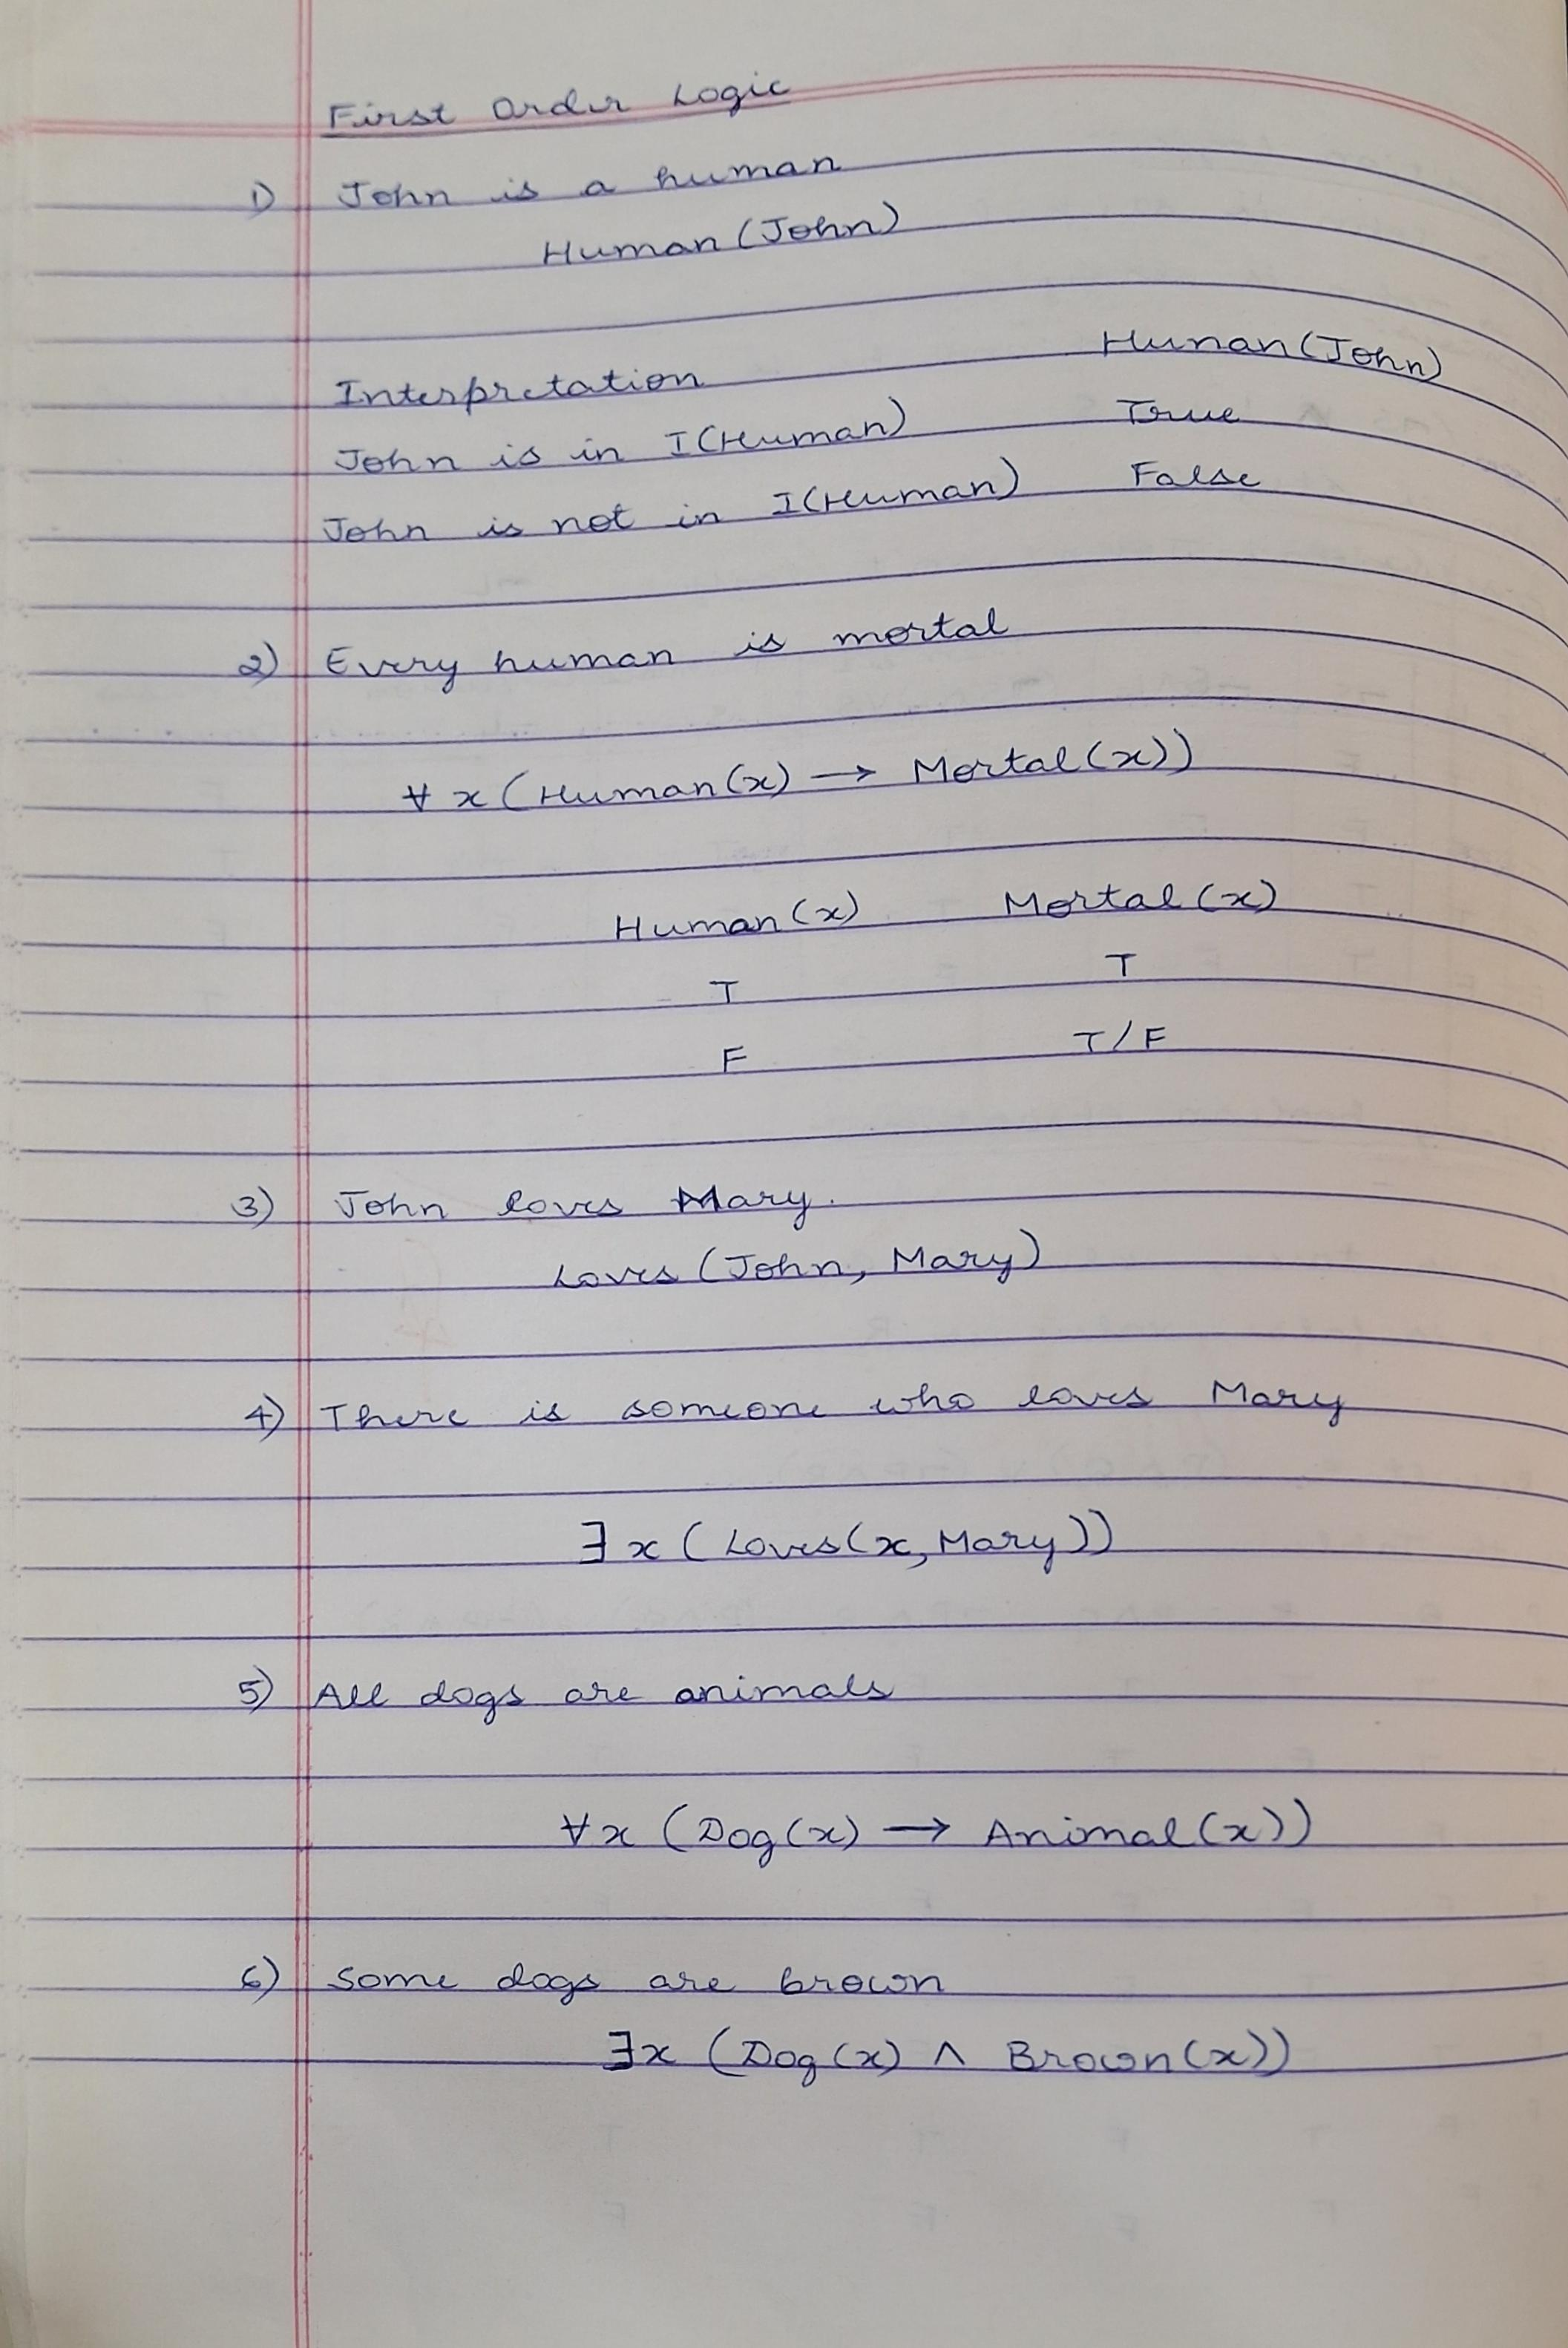 First Order Logic
1) John is a human
Human (John)
Interpretation Human (John)
John is in I(Human) True
John is not in I(Human) False
2) Every human is mortal
∀ x (Human(x) → Mortal(x))
Human (x) Mortal (x)
T T
F T/F
3) John loves Mary.
Loves (John, Mary)
4) There is someone who loves Mary
∃ x (Loves(x, Mary))
5) All dogs are animals
∀x (Dog(x) → Animal(x))
6) Some dogs are brown
∃x (Dog(x) ∧ Brown(x))